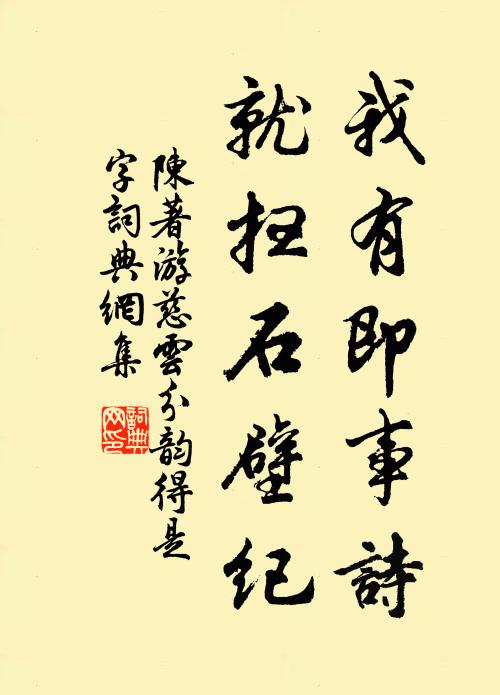 我有即事詩
就扫石壁纪
陳著游慈雲分韵得是
字詞典網集
詞典网印